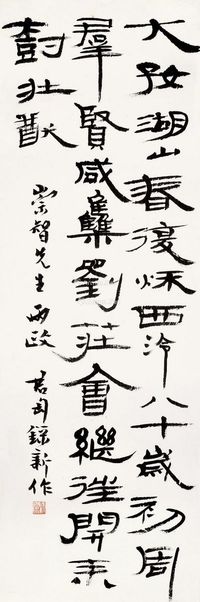 大好湖山春復秋西泠八十歲初周
羣賢咸雧劉莊會繼往開来
尌壯猷
崇智先生兩政
君匋録新作